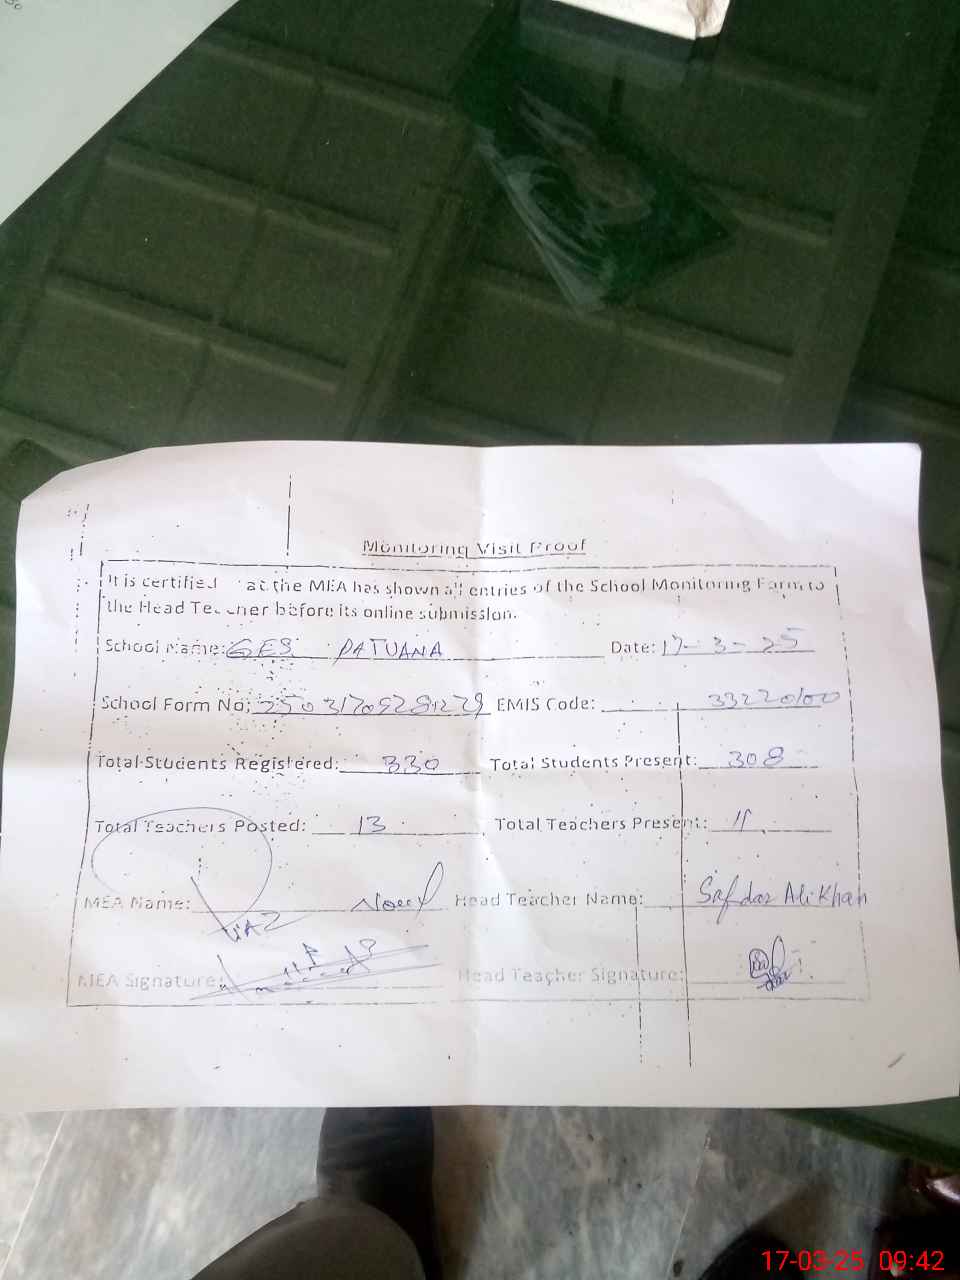 Monitoring Visit Proof
It is certified at the MEA has shown all entries of the School Monitoring Form to
the Head Teacher before its online submission.
School Name: GES PATUANA Date: 17-3-25
School Form No: EMIS Code: 33220100
Total Students Registered: 330 Total Students Present: 308
Total Teachers Posted: 13 Total Teachers Present: 11
MEA Name: Head Teacher Name: Safdar Ali Khan
MEA Signature: Head Teacher Signature:
17-03-25 09:42